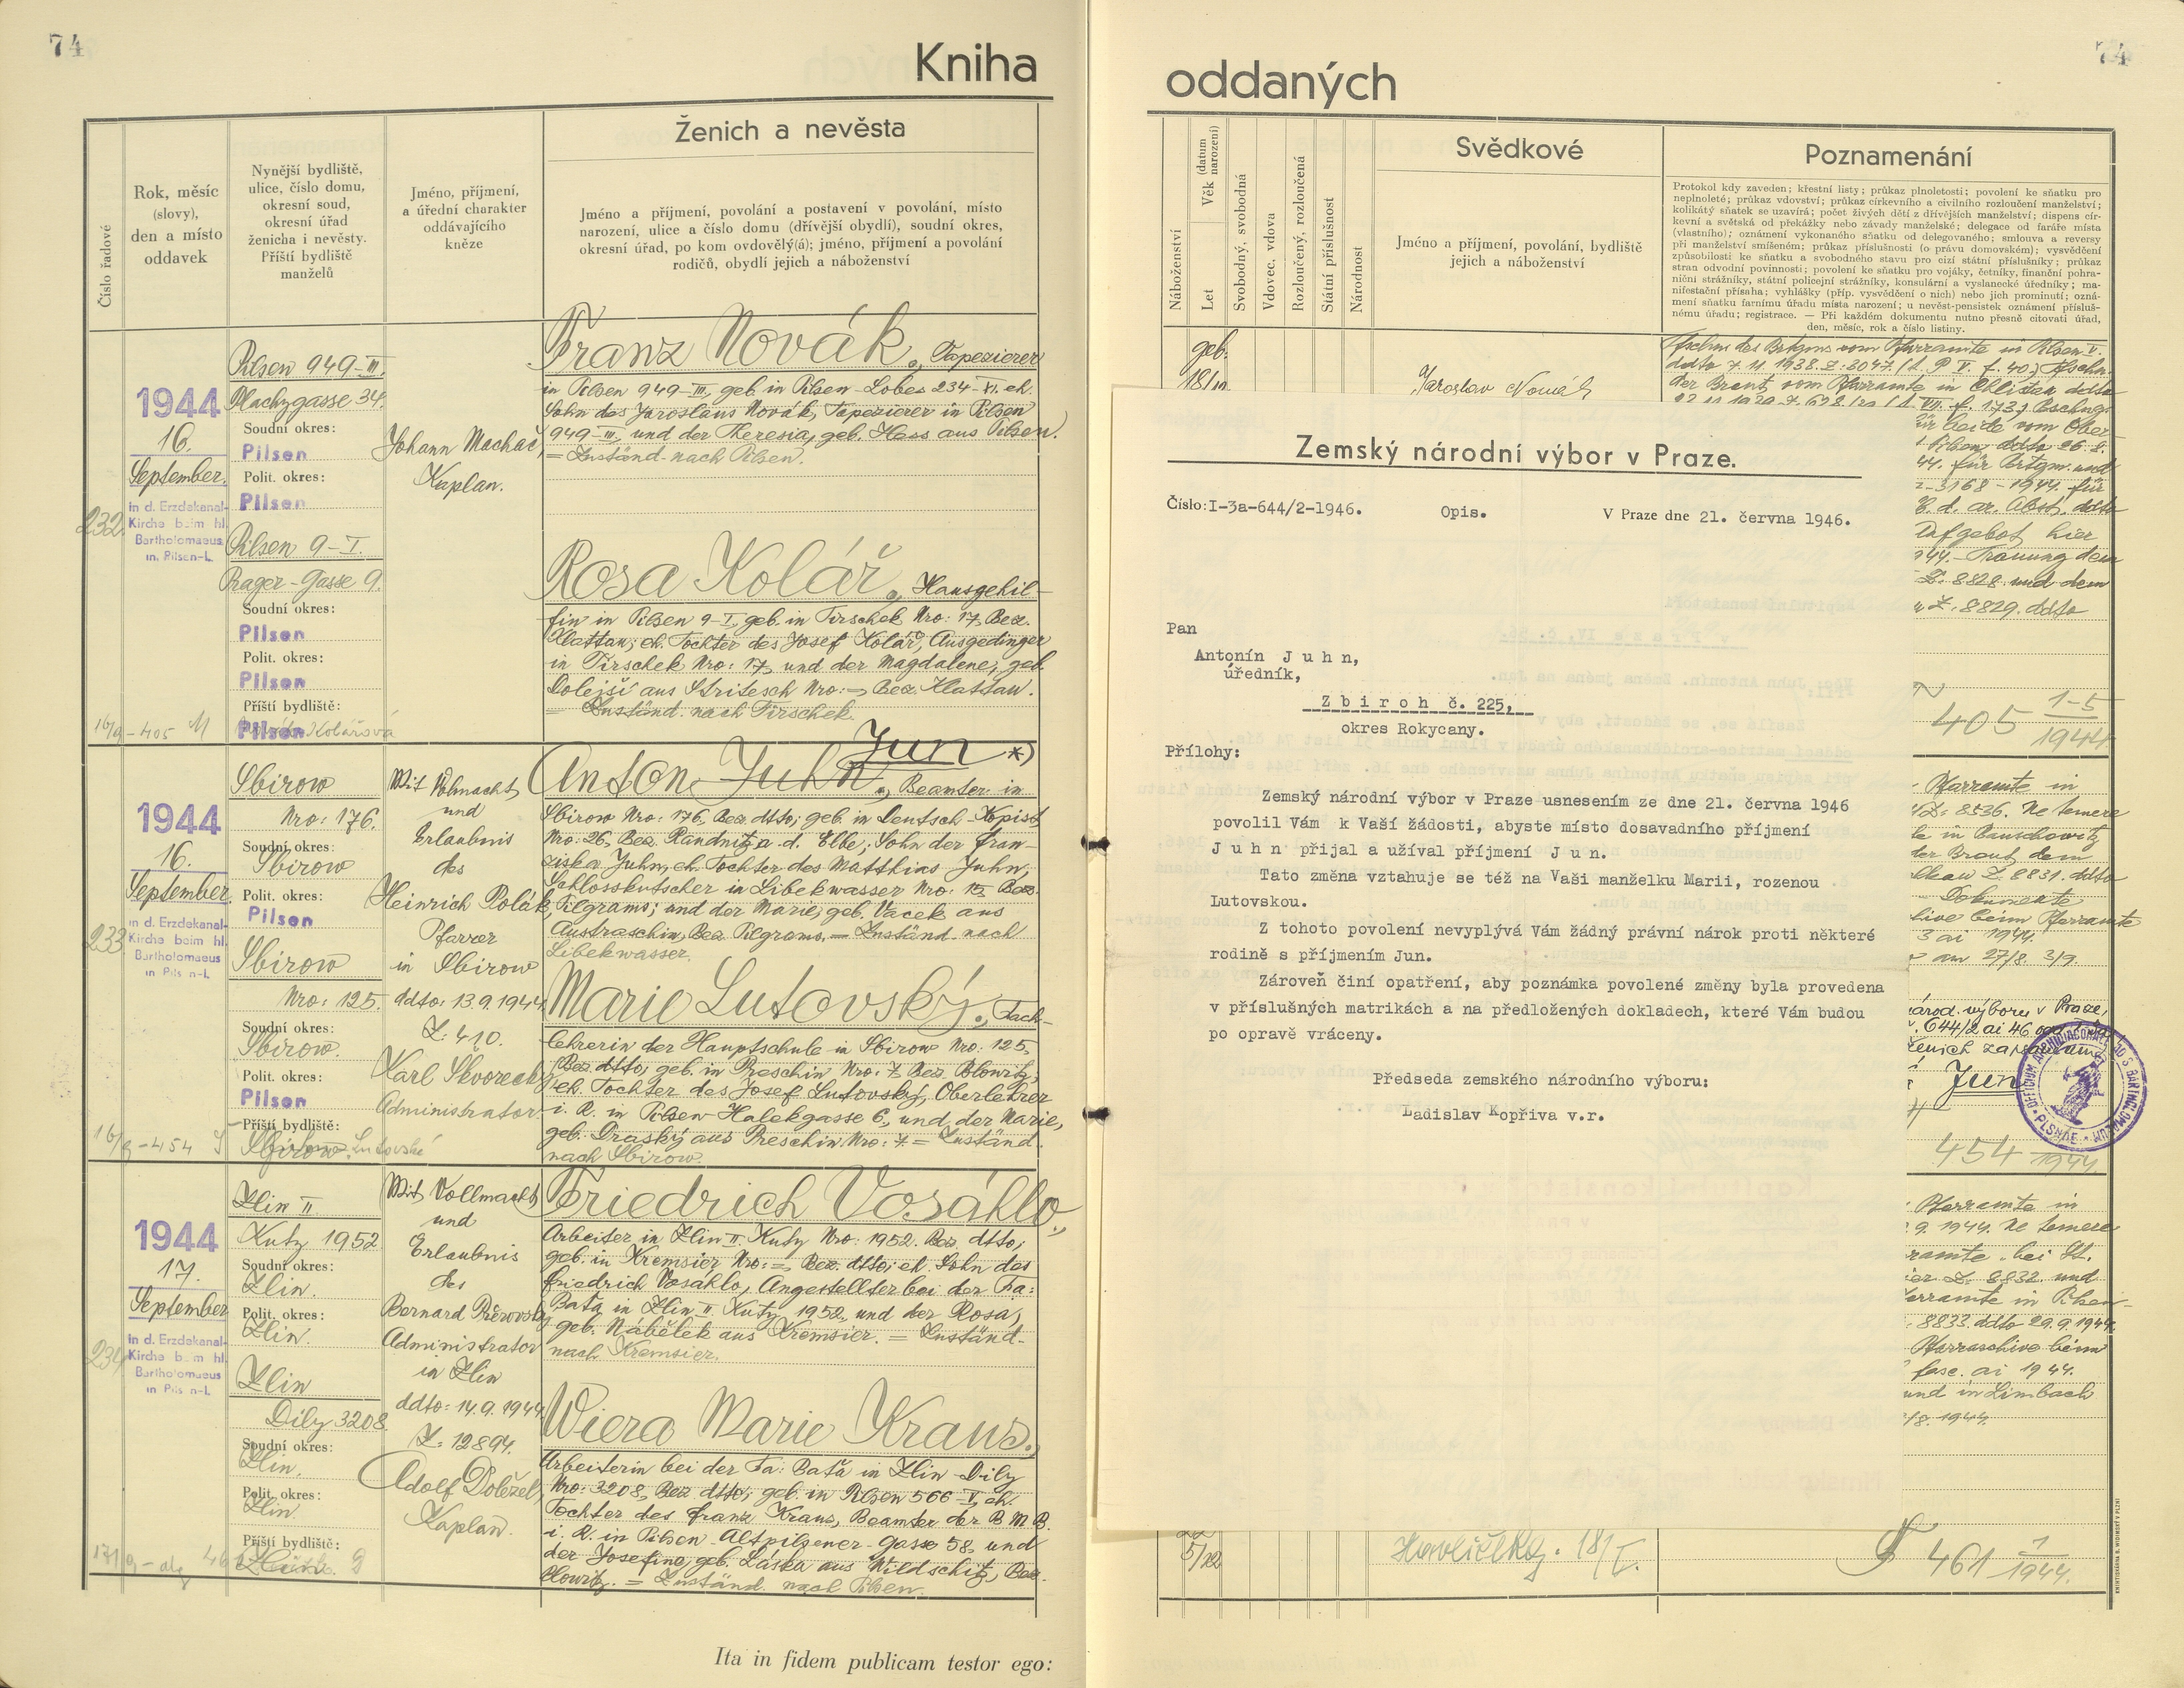 74
Kniha
Číslo řadové
Rok, měsíc
(slovy),
den a místo
oddavek
Nynější bydliště,
ulice, číslo domu,
okresní soud,
okresní úřad
ženicha i nevěsty.
Příští bydliště
manželů
Jméno, příjmení,
a úřední charakter
oddávajícího
kněze
Ženich a nevěsta
Jméno a příjmení, povolání a postavení v povolání, místo
narození, ulice a číslo domu (dřívější obydlí), soudní okres,
okresní úřad, po kom ovdovělý(á); jméno, příjmení a povolání
rodičů, obydlí jejich a náboženství
232.
1944
16.
September.
in d. Erzdekanal-
Kirche beim hl.
Bartholomaeus
in Pilsen-L
Pilsen 949-III.
Plachygasse 34.
Soudní okres:
Pilsen
Polit. okres:
Pilsen
Pilsen 9-I.
Prager-Gasse 9.
Soudní okres:
Pilsen
Polit. okres:
Pilsen
Příští bydliště:
Pilsen
16/9-405
Johann Machač,
Kaplan.
Franz Novák, Tapezierer
in Pilsen 949-III, geb. in Pilsen-Lobes 234-XI. eh.
Sohn des Jaroslaus Novák, Tapezierer in Pilsen
949-III, und der Theresia, geb. Hess aus Pilsen.
= Zuständ. nach Pilsen.
Rosa Kolář, Hausgehil-
fin in Pilsen 9-I, geb. in Tirschek Nro: 17, Bez.
Klattau; eh. Tochter des Josef Kolář, Ausgedinger
in Tirschek Nro: 17, und der Magdalene, geb.
Dolejší aus Stritesch Nro: = Bez. Klattau.
= Zuständ. nach Tirschek.
233
1944
16.
September.
in d. Erzdekanal-
Kirche beim hl.
Bartholomaeus
in Pilsen-L
Sbirow
Nro: 176.
Soudní okres:
Sbirow
Polit. okres:
Pilsen
Sbirow
Nro: 125.
Soudní okres:
Sbirow.
Polit. okres:
Pilsen
Příští bydliště:
Sbirow
16/9-454
Mit Vollmacht
und
Erlaubnis
des
Heinrich Polák,
Pfarrer
in Sbirow
ddto: 13.9.1944
Z: 410.
Karl Skvoreck
Administrator
Jun *)
Anton Juhn, Beamter in
Sbirow Nro: 176, Bez. dtto; geb. in Deutsch-Kopist
Nro: 26, Bez. Raudnitz a. d. Elbe; Sohn der Fran-
ziska Juhn, eh. Tochter des Matthias Juhn,
Schlosskutscher in Libekwasser Nro: 15, Bez.
Pilgrams; und der Marie, geb. Vacek aus
Austraschin, Bez. Pilgrams. = Zuständ. nach
Libekwasser.
Marie Lutovský, Fach-
lehrerin der Hauptschule in Sbirow Nro: 125,
Bez. dtto, geb. in Preschin Nro: 7. Bez. Blowitz,
eh. Tochter des Josef Lutovský, Oberlehrer
i. R. in Pilsen-Halekgasse 6, und der Marie,
geb. Draský aus Preschin, Nro: 7. = Zuständ.
nach Sbirow.
234
1944
17.
September
in d. Erzdekanal-
Kirche beim hl.
Bartholomaeus
in Pilsen-L
Zlin II
Kuty 1952
Soudní okres:
Zlin.
Polit. okres:
Zlin.
Zlin
Dily 3208
Soudní okres:
Zlin.
Polit. okres:
Zlin.
Příští bydliště:
Mit Vollmacht
und
Erlaubnis
des
Bernard Přerovský
Administrator
in Zlin
ddto: 14.9.1944.
Z: 12894.
Adolf Doležel,
Kaplan.
Friedrich Vosáhlo,
Arbeiter in Zlin II Kuty Nro: 1952. Bez. dtto;
geb. in Kremsier Nro: = Bez. dtto; eh. Sohn des
Friedrich Vosáhlo, Angestellter bei der Fa:
Bata in Zlin II Kuty 1952, und der Rosa,
geb. Nábělek aus Kremsier. = Zuständ-
nach Kremsier.
Wiera Marie Kraus,
Arbeiterin bei der Fa: Baťa in Zlin-Dily
Nro: 3208, Bez. dtto; geb. in Pilsen 566-V, eh.
Tochter des Franz Kraus, Beamter der B M B.
i. R. in Pilsen-Altpilsener-Gasse 58, und
der Josefine, geb. Láska aus Wildschitz, Bez.
Blowitz. = Zuständ. nach Pilsen.
Ita in fidem publicam testor ego:
74
oddaných
Náboženství
Věk (datum narození)
Let
Svobodný, svobodná
Vdovec, vdova
Rozloučený, rozloučená
Státní příslušnost
Národnost
Svědkové
Jméno a příjmení, povolání, bydliště
jejich a náboženství
Poznamenání
Protokol kdy zaveden; křestní listy; průkaz plnoletosti; povolení ke sňatku pro
neplnoleté; průkaz vdovství; průkaz církevního a civilního rozloučení manželství;
kolikátý sňatek se uzavírá; počet živých dětí z dřívějších manželství; dispens cír-
kevní a světská od překážky nebo závady manželské; delegace od faráře místa
(vlastního); oznámení vykonaného sňatku od delegovaného; smlouva a reversy
při manželství smíšeném; průkaz příslušnosti (o právu domovském); vysvědčení
způsobilosti ke sňatku a svobodného stavu pro cizí státní příslušníky; průkaz
stran odvodní povinnosti; povolení ke sňatku pro vojáky, četníky, finanční pohra-
niční strážníky, státní policejní strážníky, konsulární a vyslanecké úředníky; ma-
nifestační přísaha; vyhlášky (příp. vysvědčení o nich) nebo jich prominutí; ozná-
mení sňatku farnímu úřadu místa narození; u nevěst-pensistek oznámení přísluš-
nému úřadu; registrace. — Při každém dokumentu nutno přesně citovati úřad,
den, měsíc, rok a číslo listiny.
geb.
Jaroslav Novák
Tfschn des Brtgms vom Pfarramte in Pilsen-V.
ddto 7.11.1938. Z: 6047.
der Braut vom Pfarramte in Chlistau ddto
für beide vom Ober-
44. für Brtgm. und
z-3168-1944. für
Aufgebot hier
944.-Trauung dem
Z. 8828. und dem
Z. 8829. ddto
405 1-5
1944
Pfarramte in
Z: 8536. Ne temere
der Braut dem
Z. 8831. ddto
Dokumente
beim Pfarramte
3 ai 1944.
am 27/8. 3/9.
národ. výboru v Praze,
644/2 ai 46
ženich zapsán
Jun
OFFICIUM ARCHIDIACONALE AD S. BARTHOLOMAEUM PLSNAE
454
1944
Pfarramte in
9. 1944. Ne temere
Pfarramte bei St.
Z. 8832. und
Pfarramte in Pilsen-
8833. ddto 29.9.1944.
Pfarrarchive beim
fasc. ai 1944.
und in Limbach
/8. 1944.
5/12
Havlíčkg. 18/I.
461 1
1944.
Zemský národní výbor v Praze.
Číslo: I-3a-644/2-1946.
Opis.
V Praze dne 21. června 1946.
Pan
Antonín J u h n,
úředník,
Z b i r o h č. 225,
okres Rokycany.
Přílohy:
Zemský národní výbor v Praze usnesením ze dne 21. června 1946
povolil Vám k Vaší žádosti, abyste místo dosavadního příjmení
J u h n přijal a užíval příjmení J u n.
Tato změna vztahuje se též na Vaši manželku Marii, rozenou
Lutovskou.
Z tohoto povolení nevyplývá Vám žádný právní nárok proti některé
rodině s příjmením Jun.
Zároveň činí opatření, aby poznámka povolené změny byla provedena
v příslušných matrikách a na předložených dokladech, které Vám budou
po opravě vráceny.
Předseda zemského národního výboru:
Ladislav Kopřiva v.r.